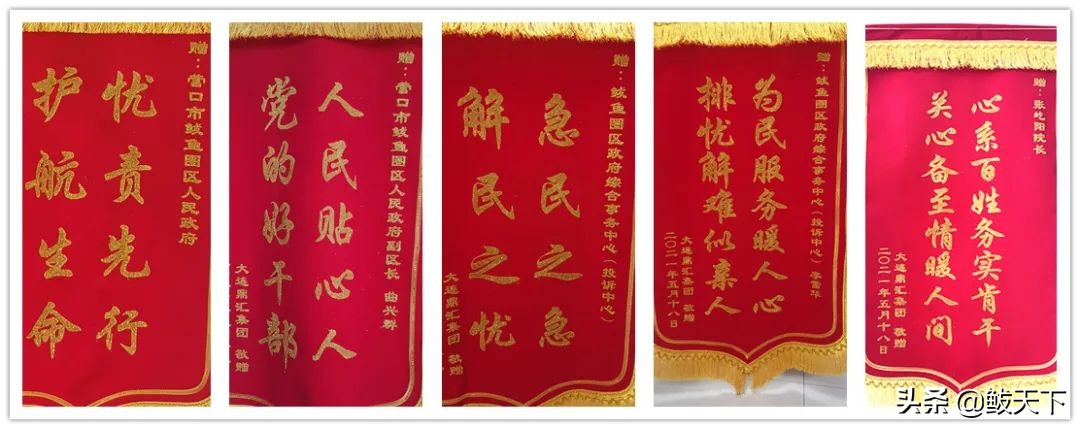 赠：营口市鲅鱼圈区人民政府
忧责先行
护航生命
赠：营口市鲅鱼圈区人民政府副区长 曲兴群
人民贴心人
党的好干部
大连鼎汇集团 敬赠
赠：鲅鱼圈区政府综合事务中心（投诉中心）
急民之急
解民之忧
大连鼎汇集团 敬赠
赠：鲅鱼圈区政府综合事务中心（投诉中心）李雪华
为民服务暖人心
排忧解难似亲人
大连鼎汇集团 敬赠
二〇二一年五月十八日
赠：张屹阳院长
心系百姓务实肯干
关心备至情暖人间
大连鼎汇集团 敬赠
二〇二一年五月十八日
头条 @鲅天下